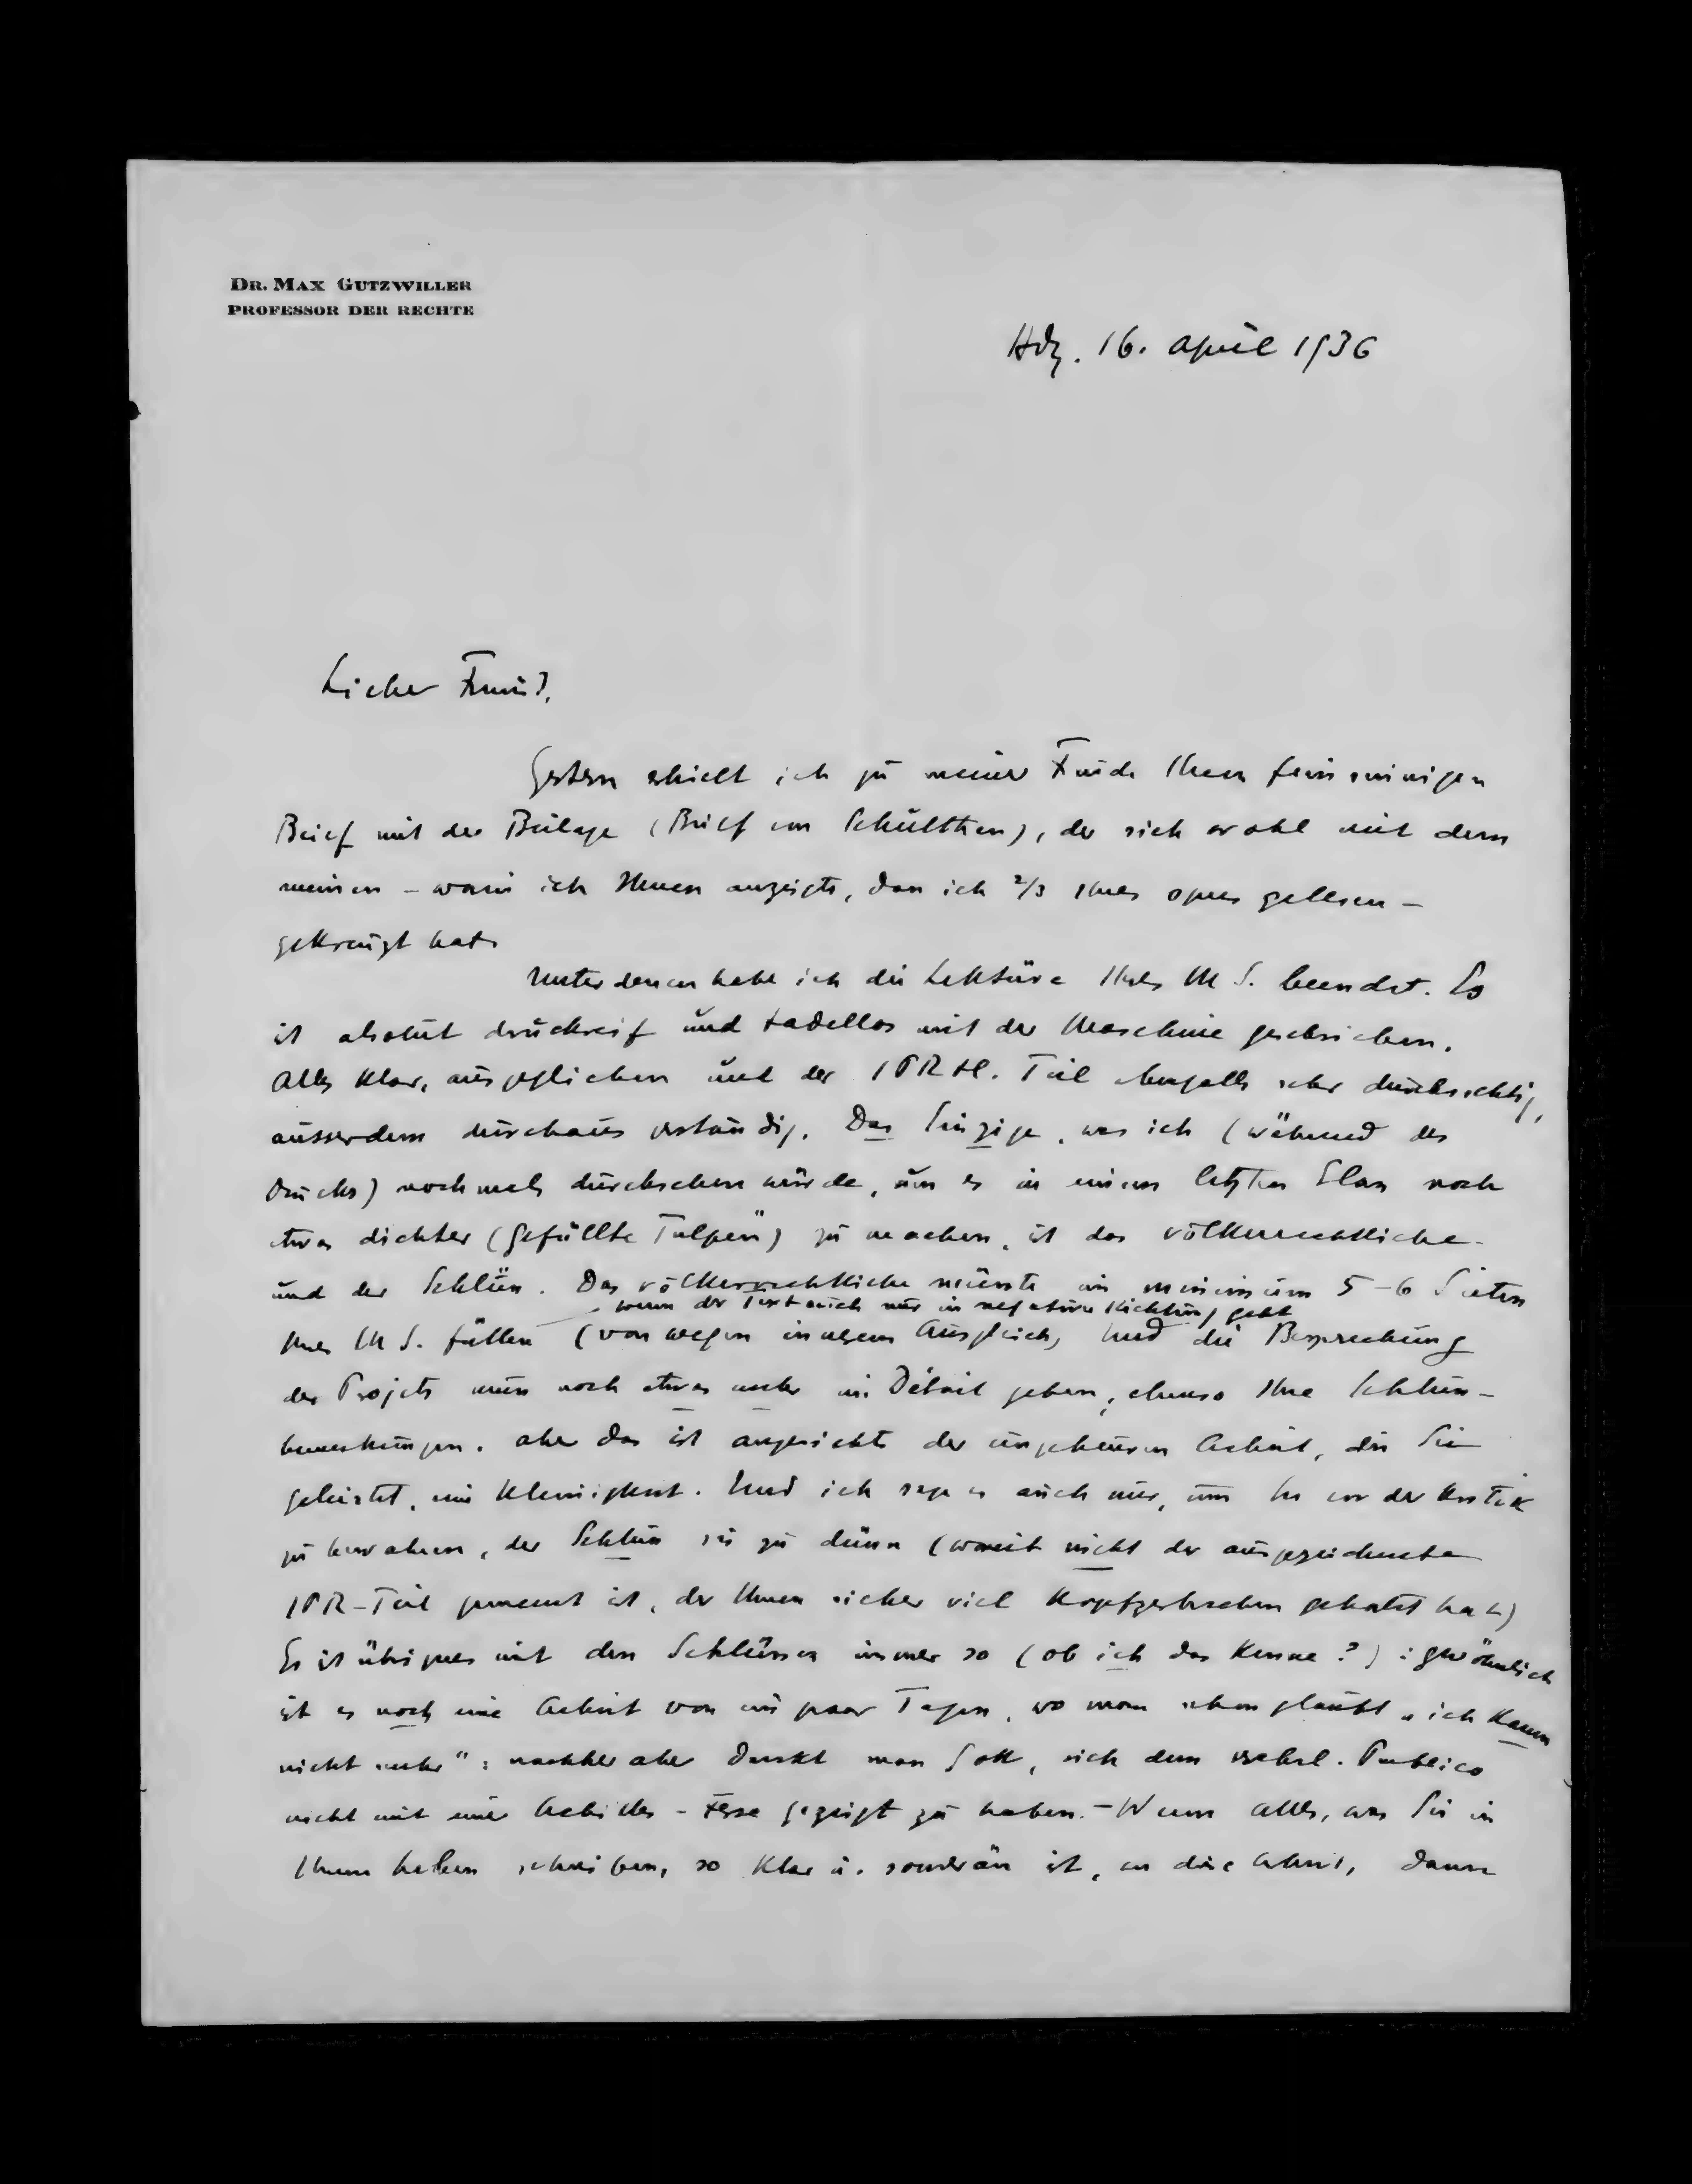 DR. MAX GUTZWILLER
PROFESSOR DER RECHTE
Hdg. 16. April 1936
Lieber Freund,
Gestern erhielt ich zu meiner Freude Ihren feinsinnigen
Brief mit der Beilage (Brief von Schulthess), der sich wohl mit dem
meinen – worin ich Ihnen anzeigte, dass ich 2/3 Ihres opus gelesen –
gekreuzt hat.
Unterdessen habe ich die Lektüre Ihres M S. beendet. Es
ist absolut druckreif und tadellos mit der Maschine geschrieben.
Alles klar, ausgeglichen und der IPR Teil ebenfalls sehr durchsichtig,
ausserdem durchaus verständig. Das Einzige, was ich (während des
Drucks) nochmals durchsehen würde, um es in einem letzten Elan noch
etwas dichter (gefüllte Tulpen") zu machen, ist das völkerrechtliche
und der Schluss. Das völkerrechtliche müsste im minimum 5–6 Seiten
wenn der Text auch nur in negative Richtung geht
Ihres M S. füllen (von wegen innerem Ausgleich) und die Besprechung
des Projets muss noch etwas mehr ins Détail gehen, ebenso Ihre Schluss-
bemerkungen. Aber das ist angesichts der ungeheuren Arbeit, die Sie
geleistet, eine Kleinigkeit. Und ich sage es auch nur, um Sie vor der Kritik
zu bewahren, der Schluss sei zu dünn (womit nicht der ausgezeichnete
IPR-Teil gemeint ist, der Ihnen sicher viel Kopfzerbrechen gekostet hat)
Es ist übrigens mit den Schlüssen immer so (ob ich das kenne?) : gewöhnlich
ist es noch eine Arbeit von ein paar Tagen, wo man schon glaubt „ich kann
nicht mehr" : nachher aber dankt man Gott, sich dem verehrl. Publico
nicht mit einer Achilles-Ferse gezeigt zu haben. – Wenn alles, was Sie in
Ihrem Leben schreiben, so klar u. souverän ist, wie diese Arbeit, dann